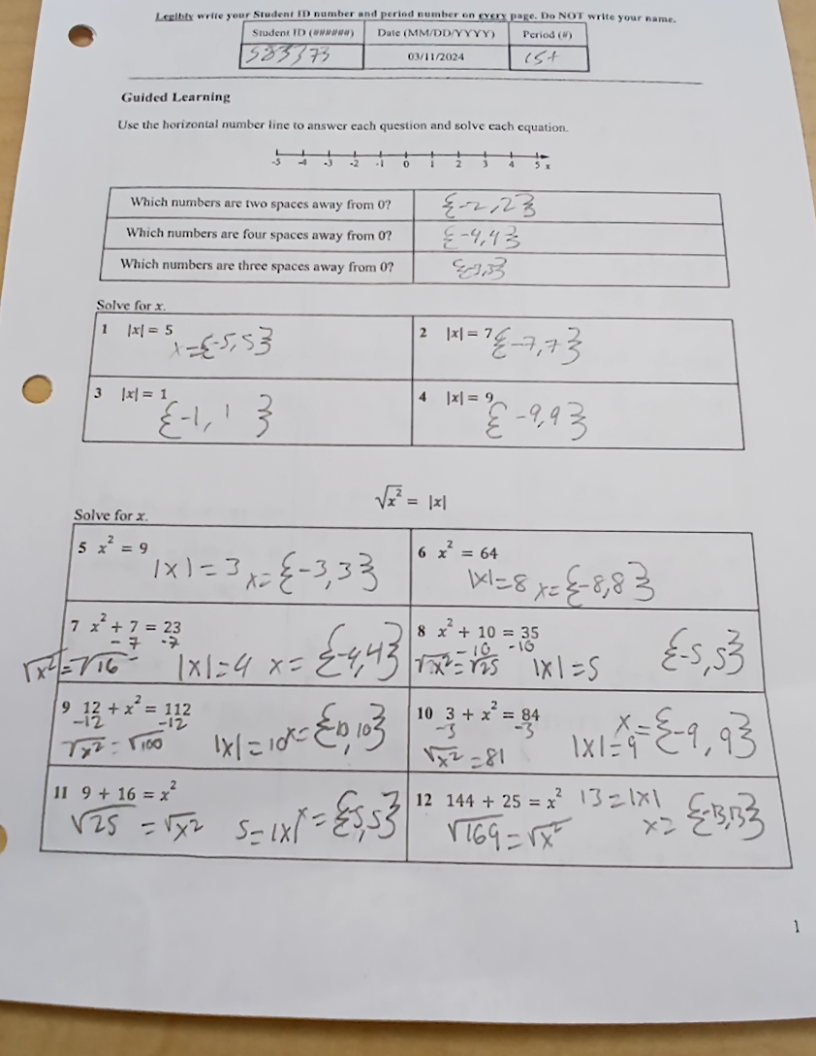 Legibly write your Student ID number and period number on every page. Do NOT write your name.
Student ID (######) Date (MM/DD/YYYY) Period (#)
583373 03/11/2024 1st
Guided Learning
Use the horizontal number line to answer each question and solve each equation.
-5 -4 -3 -2 -1 0 1 2 3 4 5 x
Which numbers are two spaces away from 0? {-2,2}
Which numbers are four spaces away from 0? {-4,4}
Which numbers are three spaces away from 0? {-3,3}
Solve for x.
1 |x| = 5 x={-5,5}
2 |x| = 7 {-7,7}
3 |x| = 1 {-1, 1}
4 |x| = 9 {-9,9}
√x² = |x|
Solve for x.
5 x² = 9
|x| = 3 x= {-3,3}
6 x² = 64
|x|=8 x={-8,8}
7 x² + 7 = 23
-7 -7
√x²=√16 |x|=4 x= {-4,4}
8 x² + 10 = 35
-10 -10
√x²=√25 |x|=5 {-5,5}
9 12 + x² = 112
-12 -12
√x²=√100 |x|=10 x={-10,10}
10 3 + x² = 84
-3 -3
√x² =81 |x|=9 x={-9,9}
11 9 + 16 = x²
√25 = √x² 5=|x| x={-5,5}
12 144 + 25 = x² 13=|x|
√169=√x² x= {-13,13}
1